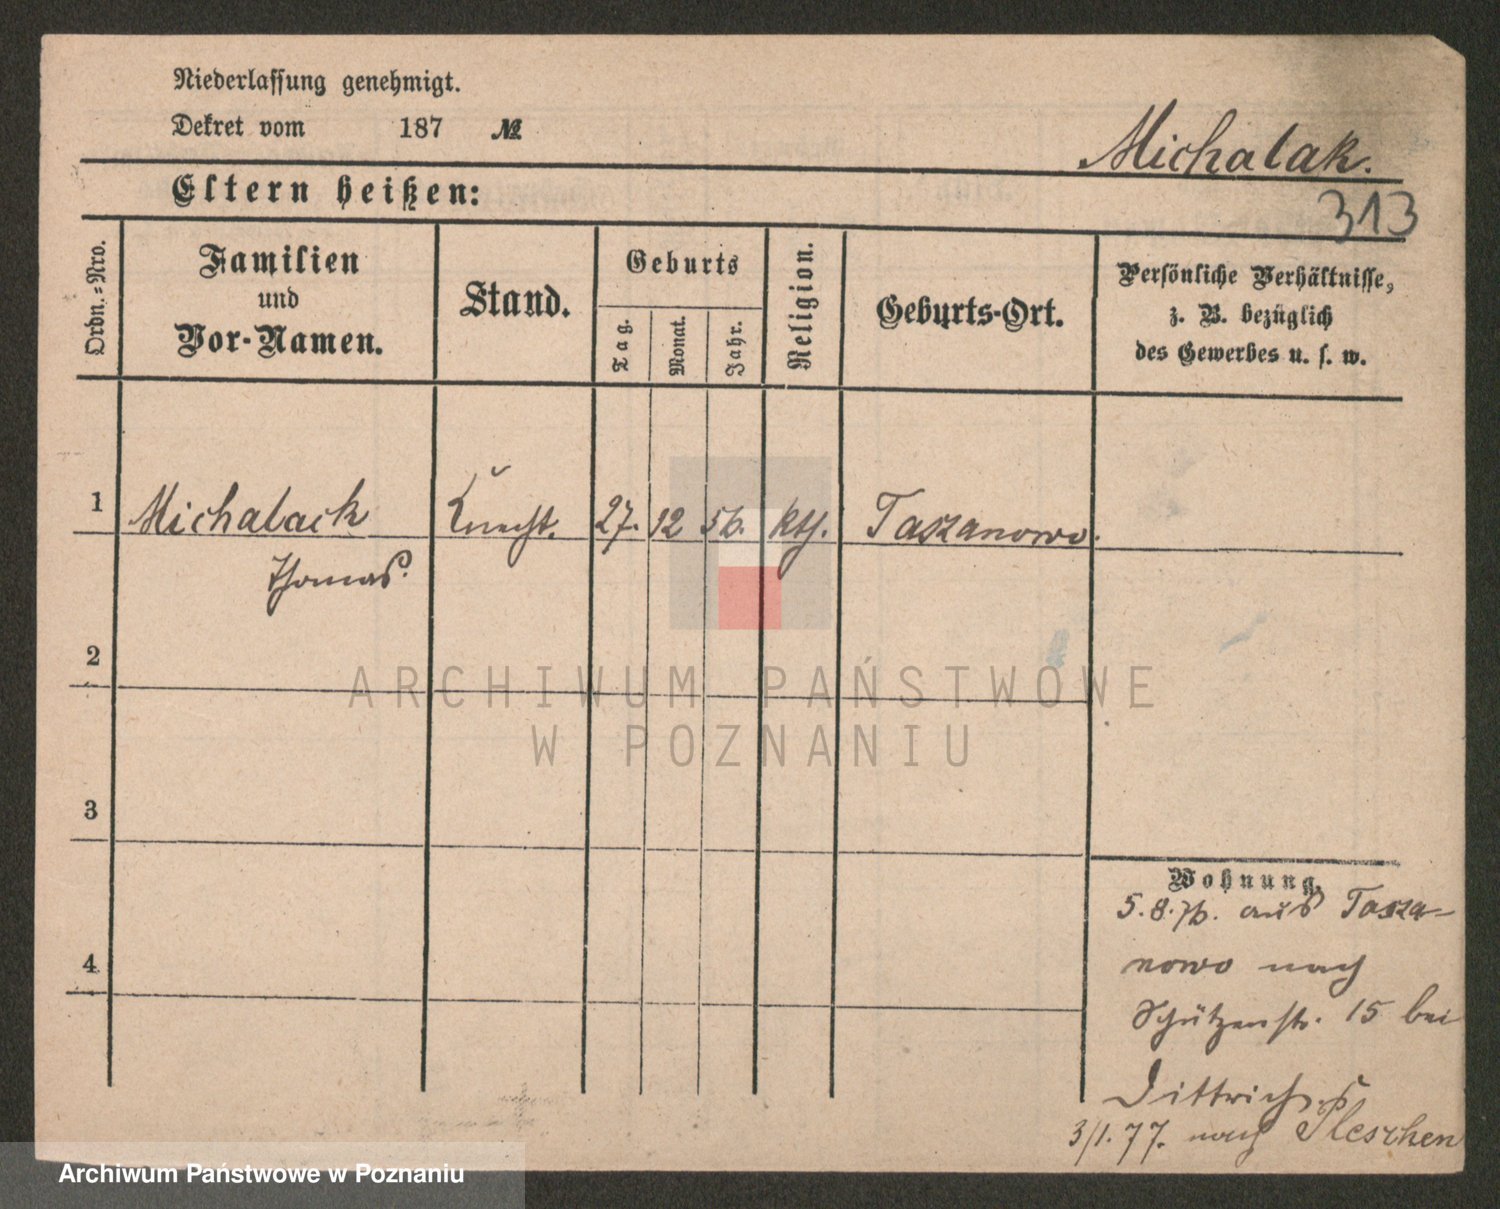 Niederlassung genehmigt.
Dekret vom 187 №
Michalak.
Eltern heißen:
313
Ordn.-Nro.
Familien
und
Vor-Namen.
Stand.
Geburts
Tag.
Monat.
Jahr.
Religion.
Geburts-Ort.
Persönliche Verhältnisse,
z. B. bezüglich
des Gewerbes u. s. w.
1 Michalack Knecht. 27. 12 56. kth. Taszanowo.
Thomas.
2
ARCHIWUM PAŃSTWOWE
W POZNANIU
3
Wohnung.
5.8.76. aus Tasza-
4
nowo nach
Schützenstr. 15 bei
Dittrich.
3/1.77. nach Pleschen
Archiwum Państwowe w Poznaniu